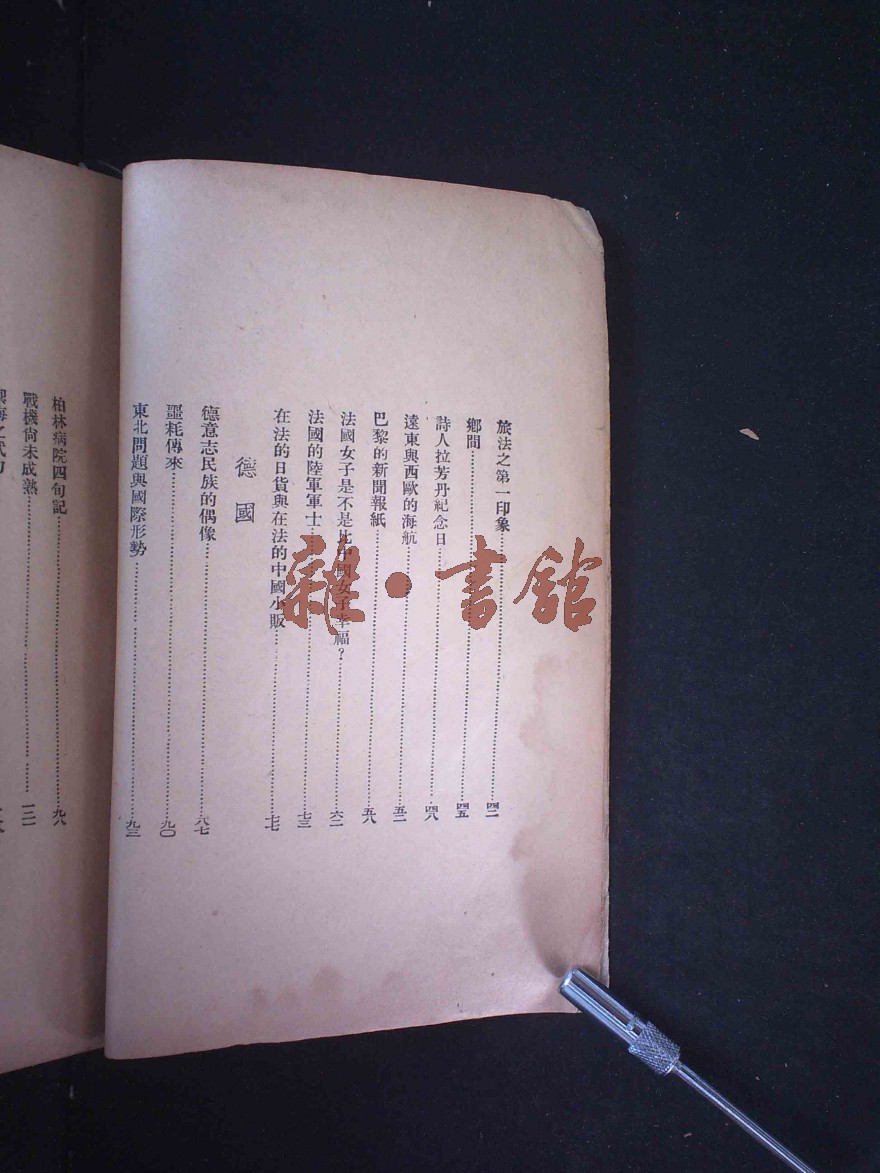 旅法之第一印象……四二
鄉間……四五
詩人拉芳丹紀念日……四八
遠東與西歐的海航……五二
巴黎的新聞報紙……五八
法國女子是不是比中國女子幸福？……六二
法國的陸軍軍士……七三
在法的日貨與在法的中國小販……七七
德國
德意志民族的偶像……八七
噩耗傳來……九〇
東北問題與國際形勢……九三
柏林病院四旬記……九八
戰機尙未成熟
雜·書館